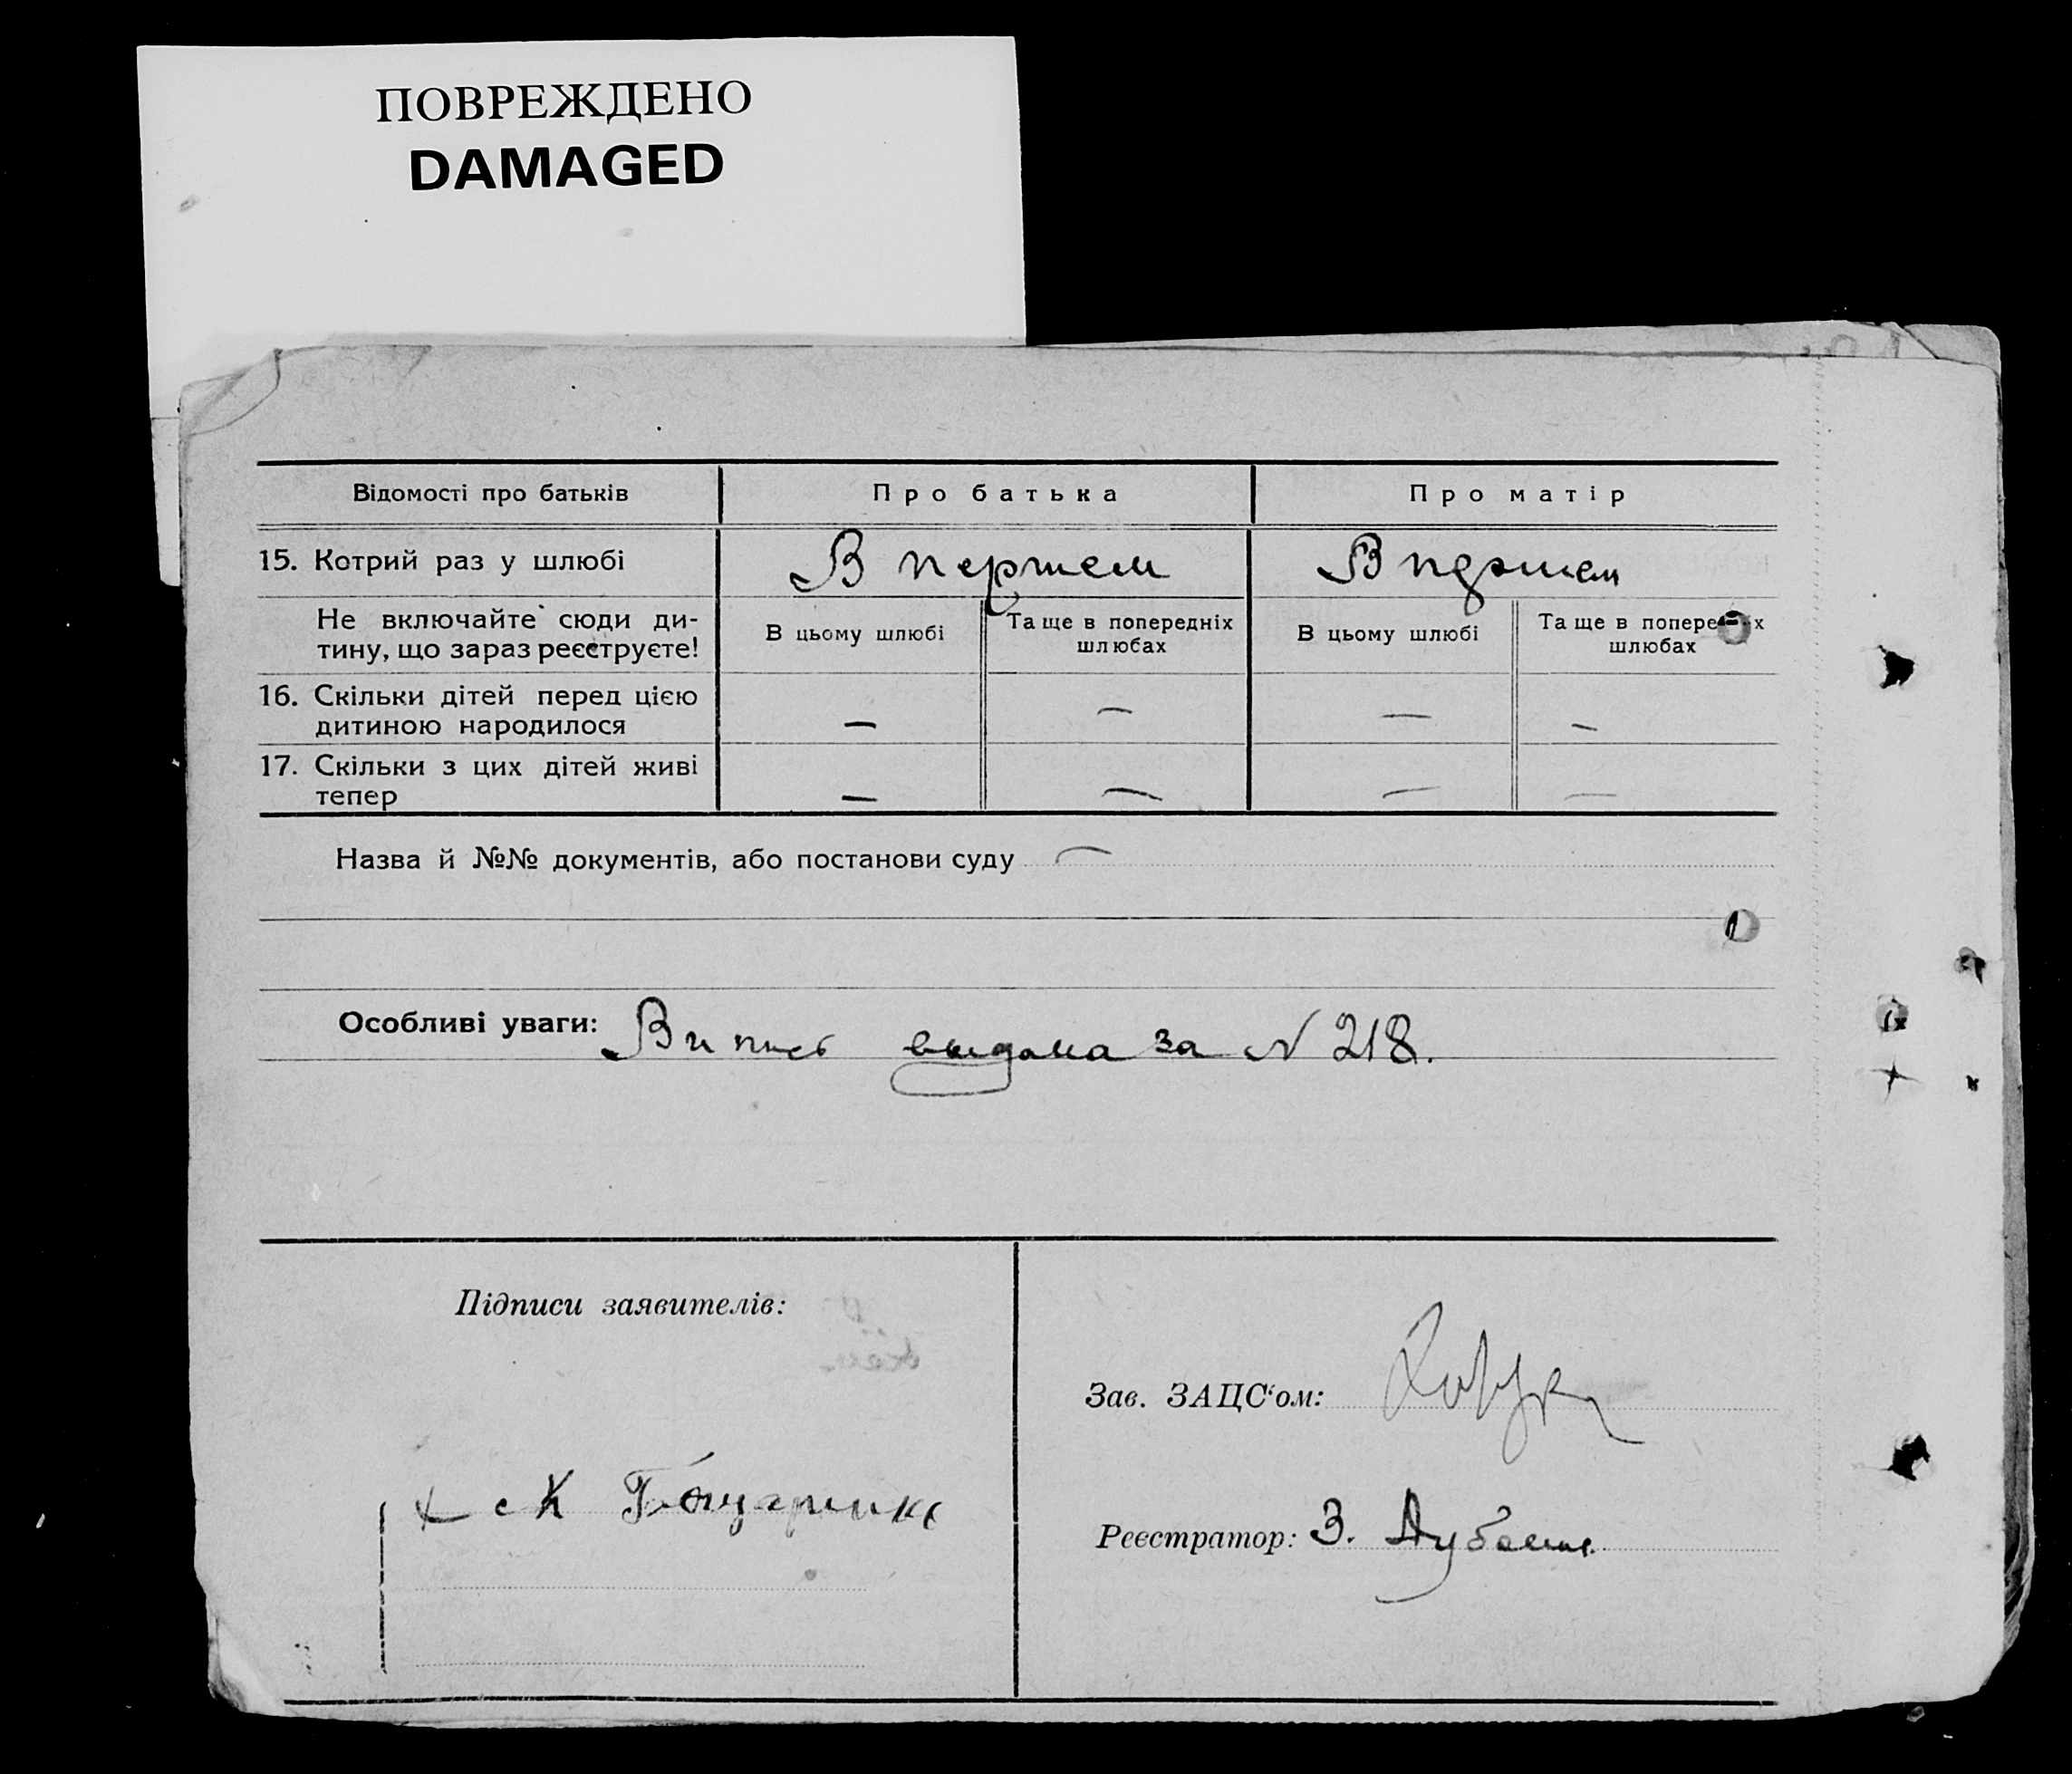 ПОВРЕЖДЕНО
DAMAGED
Відомості про батьків
Про батька
Про матір
15. Котрий раз у шлюбі
В першем
В першем
Не включайте сюди ди-
тину, що зараз реєструєте!
В цьому шлюбі
Та ще в попередніх
шлюбах
В цьому шлюбі
Та ще в попере х
шлюбах
16. Скільки дітей перед цією
дитиною народилося
— — — —
17. Скільки з цих дітей живі
тепер
— — — —
Назва й №№ документів, або постанови суду —
Особливі уваги: Випись выдана за N 218.
Підписи заявителів:
Зав. ЗАЦС‘ом:
Реєстратор: З.